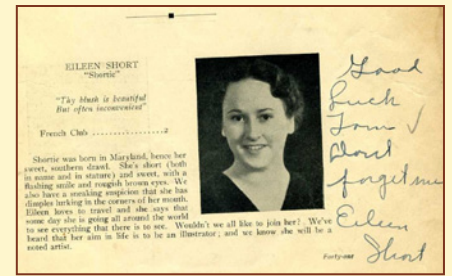 EILEEN SHORT
"Shortie"
"Thy blush is beautiful
But often inconvenient"
French Club ................2
Shortie was born in Maryland, hence her
sweet, southern drawl. She's short (both
in name and in stature) and sweet, with a
flashing smile and roguish brown eyes. We
also have a sneaking suspicion that she has
dimples lurking in the corners of her mouth.
Eileen loves to travel and she says that
some day she is going all around the world
to see everything that there is to see. Wouldn't we all like to join her! We've
heard that her aim in life is to be an illustrator; and we know she will be a
noted artist.
Good
Luck
Tom
Don't
forget me
Eileen
Short
Forty-one